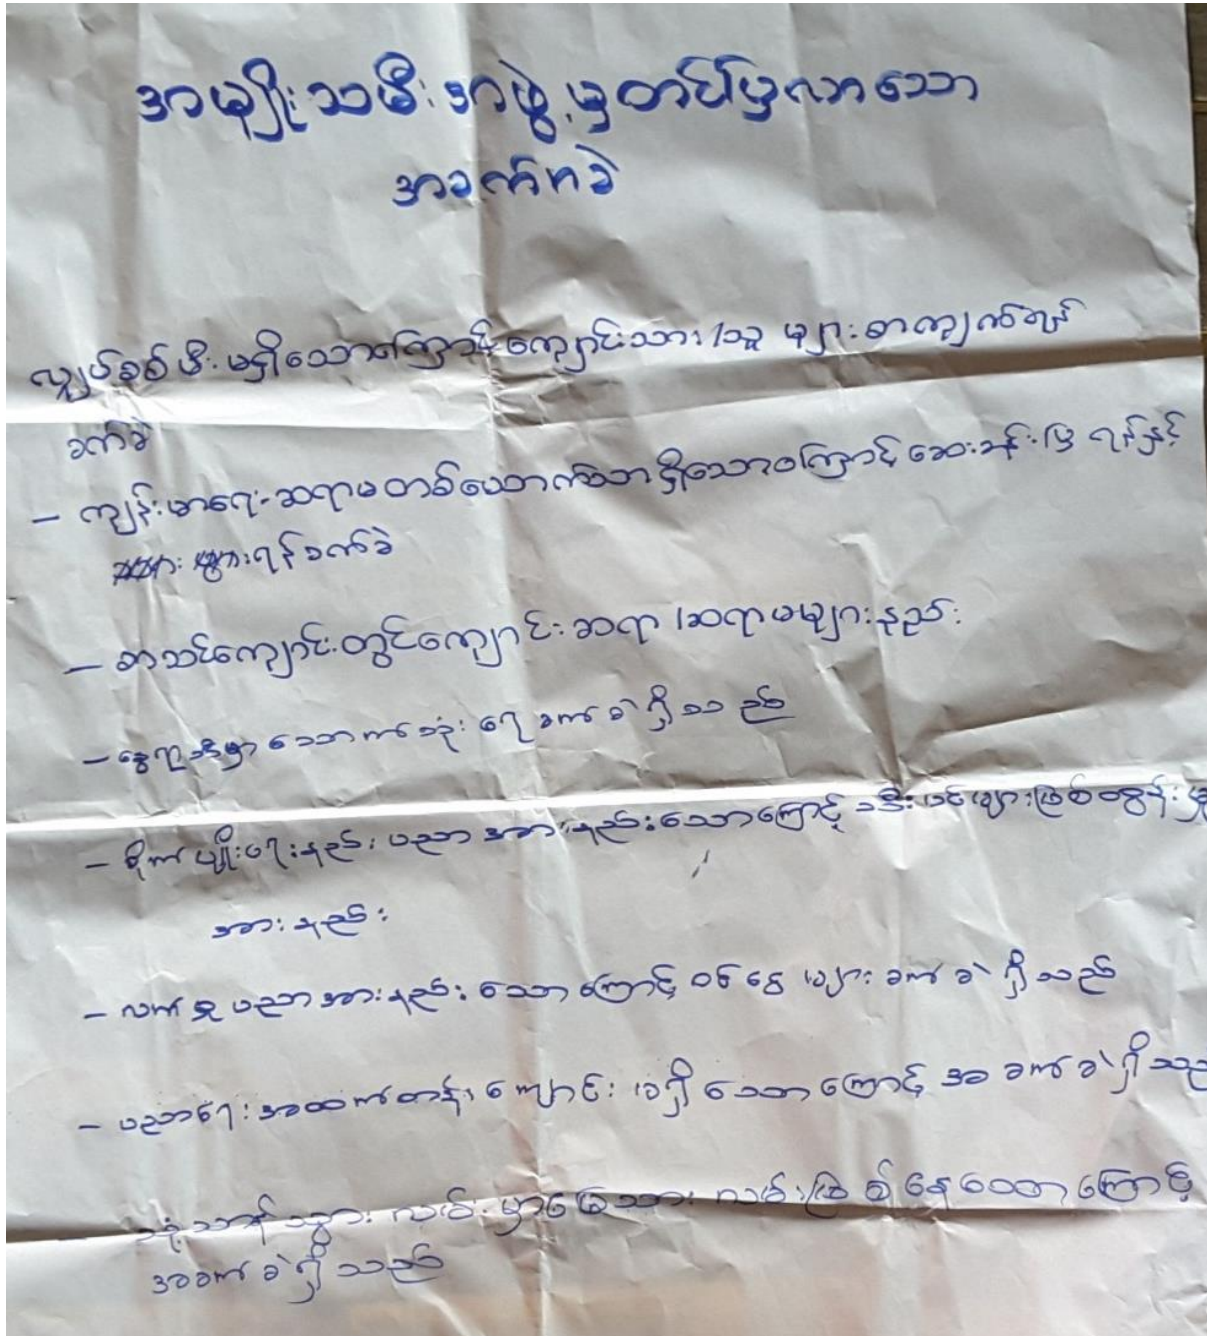 အမျိုးသမီးအဖွဲ့မှတင်ပြလာသော
အခက်ခဲ
လျှပ်စစ်မီး မရှိသောကြောင့်ကျောင်းသား/သူ များစာကျက်ရန်
ခက်ခဲ
- ကျန်းမာရေးဆရာမတစ်ယောက်သာရှိသောကြောင့် ဆေးခန်းပြ ရန်နှင့်
သွားရန်ခက်ခဲ
- စာသင်ကျောင်းတွင်ကျောင်းဆရာ/ဆရာမများနည်း
- နွေရာသီမှာ သောက်သုံး ရေ ခက်ခဲရှိသည်
- စိုက်ပျိုးရေးနည်းပညာ အားနည်းသောကြောင့် သီးပင်များဖြစ်ထွန်းမှု
အားနည်း
- လက်မှုပညာအားနည်းသောကြောင့် ဝင်ငွေ များ ခက်ခဲရှိသည်
- ပညာရေးအထက်တန်းကျောင်း မရှိသောကြောင့် အခက်ခဲရှိသည်
သွားလမ်းမှာမြေသားလမ်းဖြစ်နေသောကြောင့်
အခက်ခဲရှိသည်